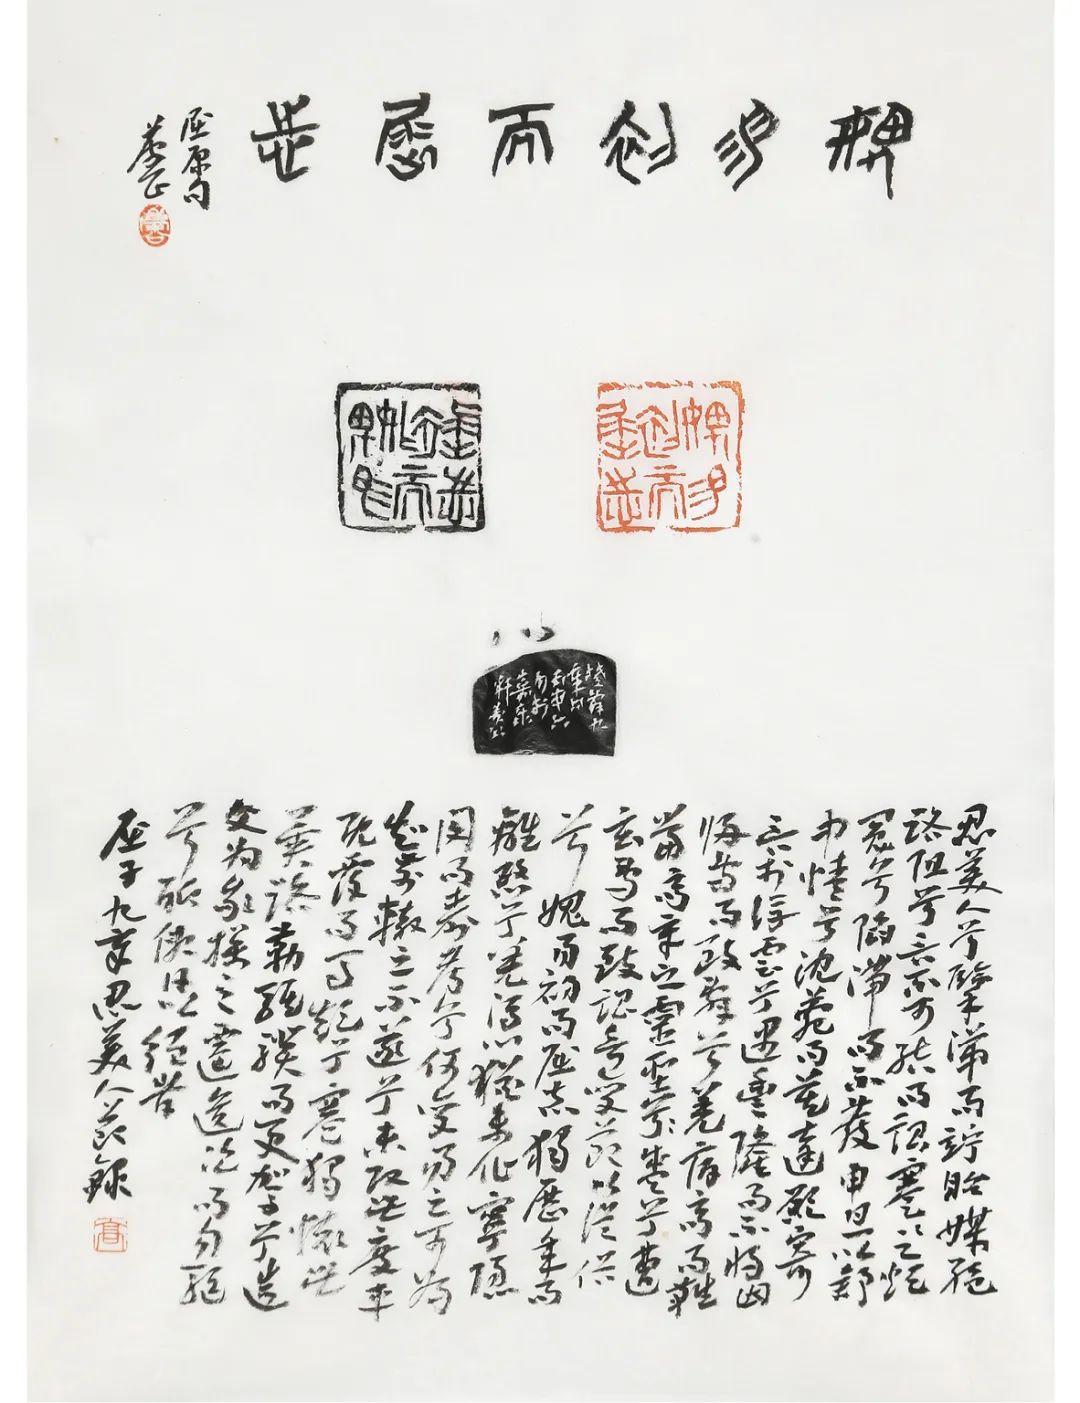 媿易初而屈志
屈原句
媿易初而屈志
媿易初而屈志
思美人兮擥涕而竚眙媒絕
路阻兮言不可結而詒蹇蹇之煩
冤兮陷滯而不發申旦以舒
中情兮沈菀而莫達願寄
言於浮雲兮遇豐隆而不將因
歸鳥而致辭兮羌宿高而難
當高辛之靈盛兮遭
玄鳥而致詒欲變節以從俗
兮媿易初而屈志獨歷年而
離愍兮羌馮心猶未化寧隱
閔而壽考兮何變易之可為
知前轍之不遂兮未改此度車
既覆而馬顛兮蹇獨懷此
異路勒騏驥而更駕兮造
父為我操之遷逡次而勿驅
兮聊假日以須時
屈子九章思美人節錄